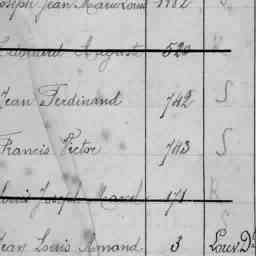 Joseph Jean Marie Louis 1982
Edouard Auguste 520
Jean Ferdinand 742 S
Francis Victor 743 S
Louis Joseph Marcel 171 R
S
Jean Louis Amand. 3 Louv.